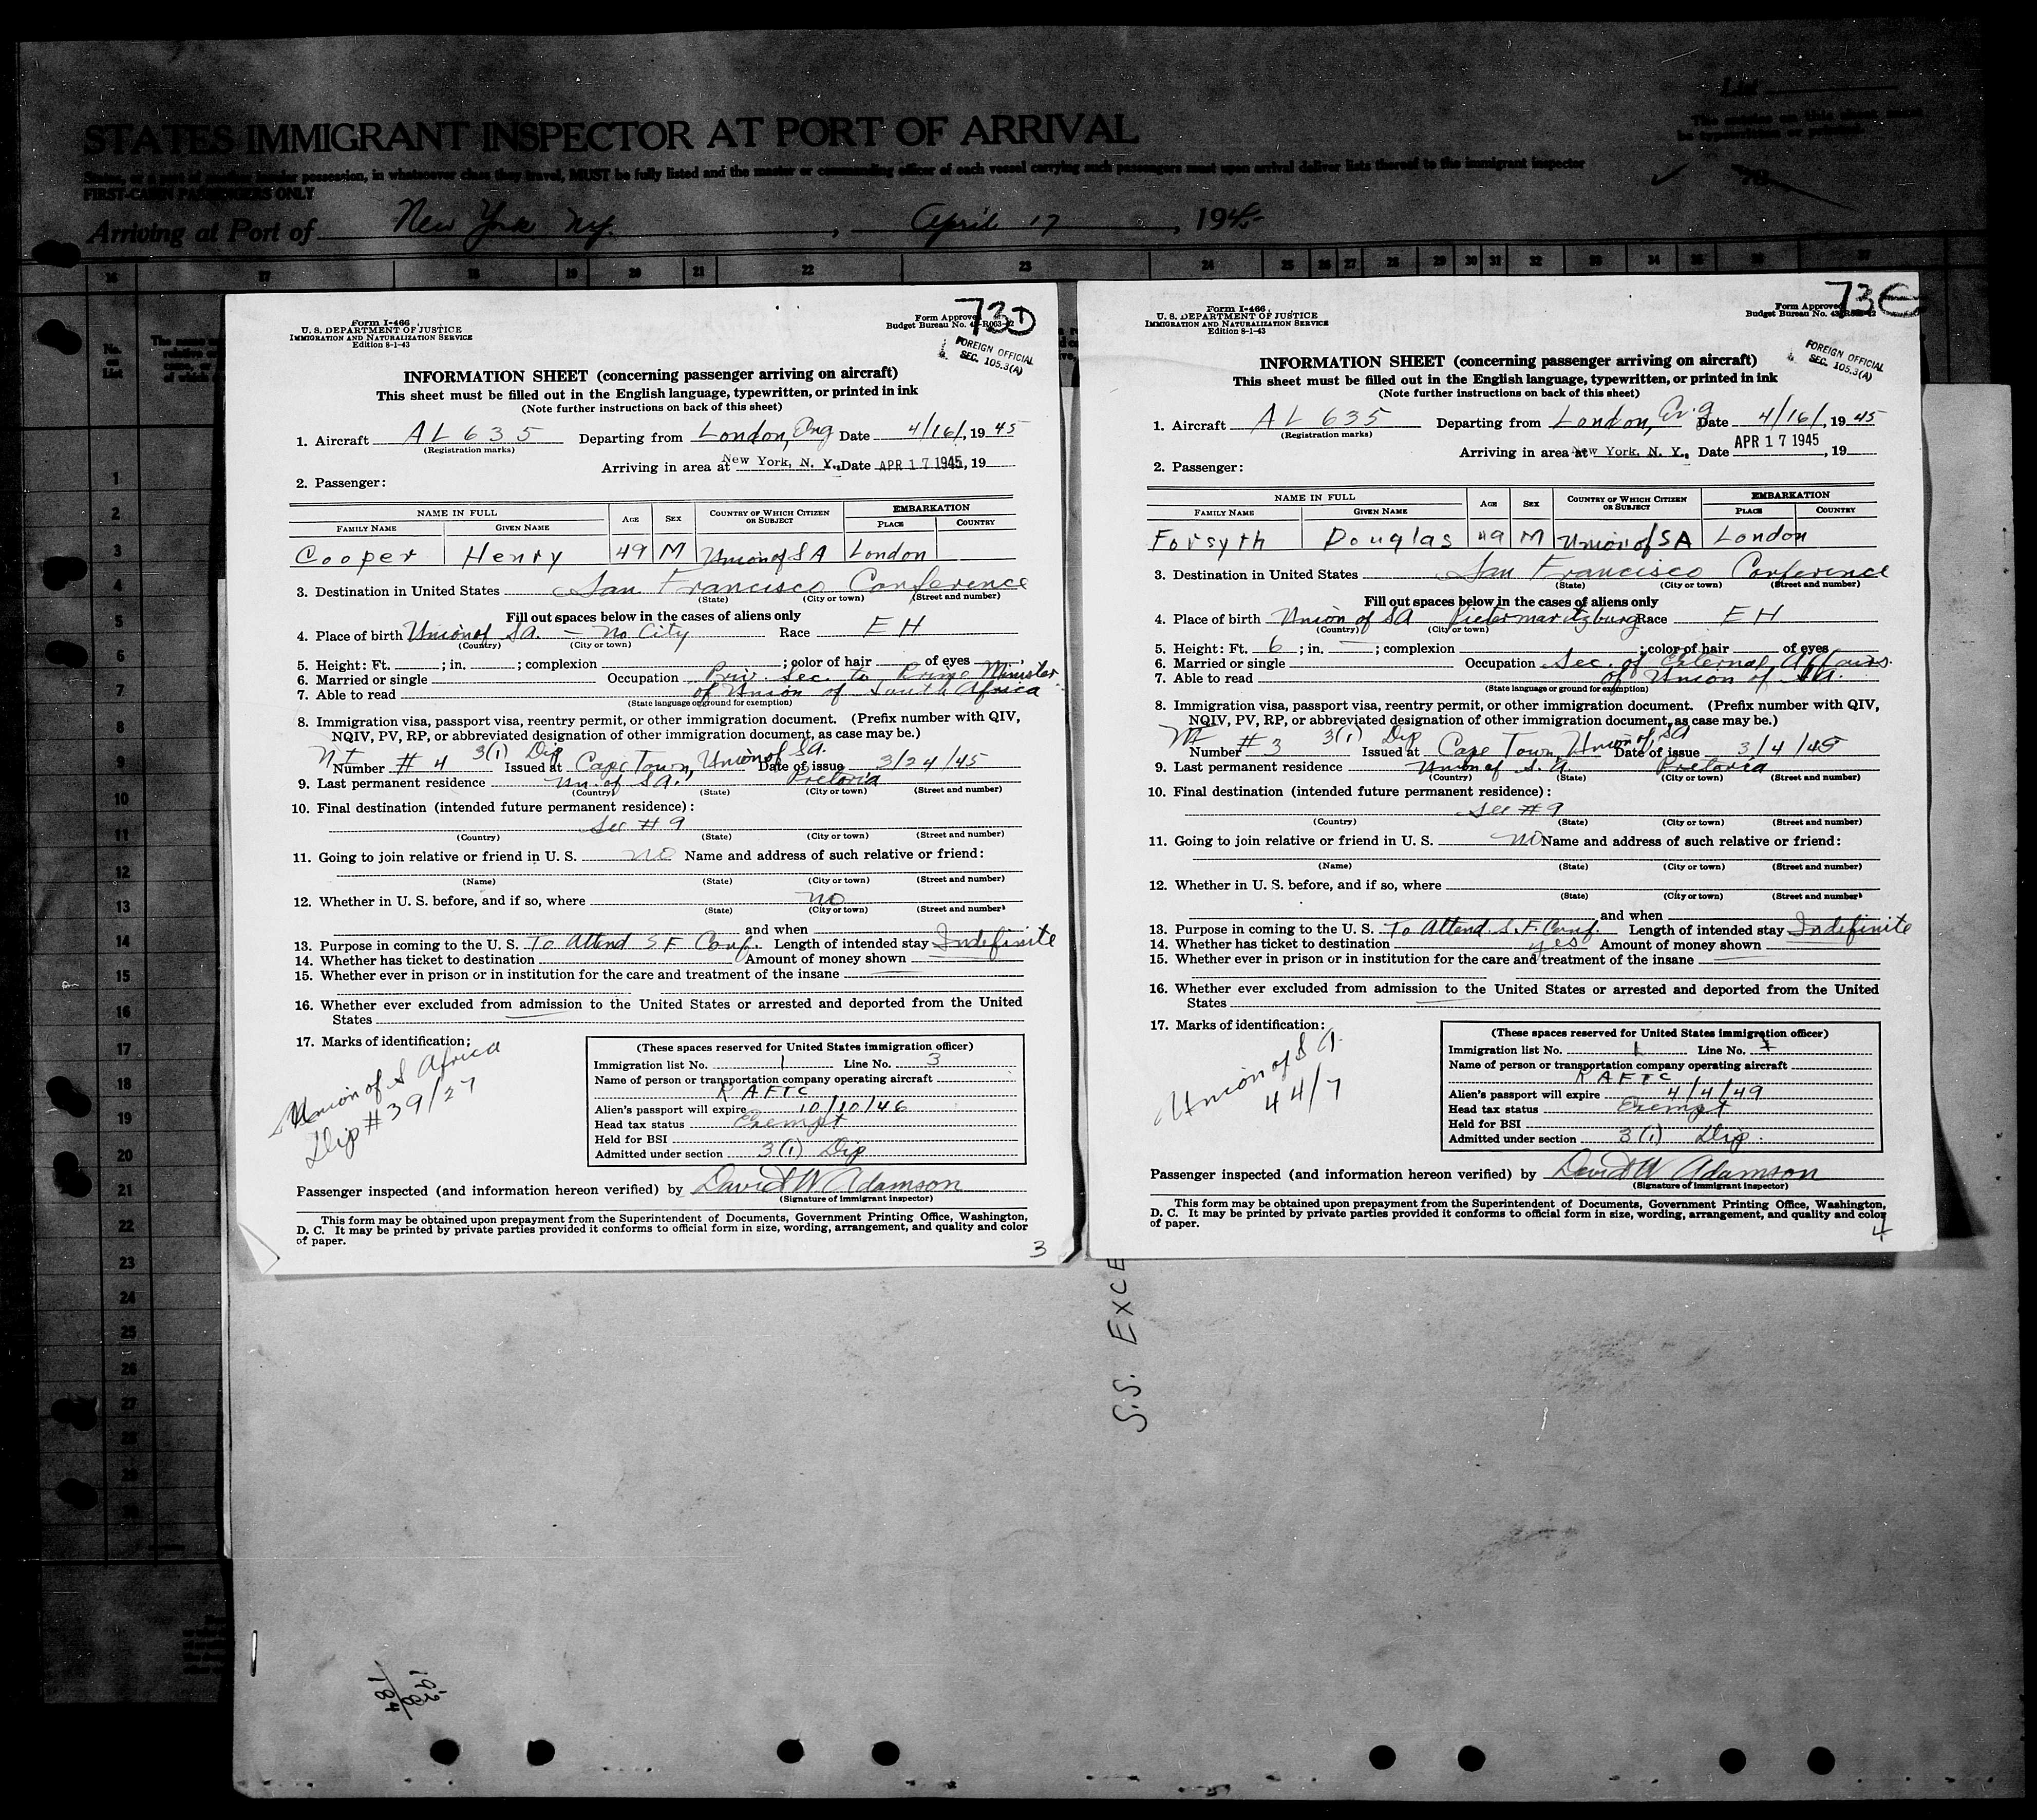 STATES IMMIGRANT INSPECTOR AT PORT OF ARRIVAL
possession, in whatsoever class they travel, MUST be fully listed and the master or commanding officer of each vessel carrying such passengers must upon arrival deliver lists thereof to the immigrant inspector
FIRST-CABIN PASSENGERS ONLY
Arriving at Port of New York NY. , April 17 , 1945
List
16 17 18 19 20 21 22 23 24 25 26 27 28 29 30 31 32 33 34 35 36 37
No. on List
1
2
3
4
5
6
7
8
9
10
11
12
13
14
15
16
17
18
19
20
21
22
23
24
25
26
27
28
29
30
73D
Form I-466
U. S. DEPARTMENT OF JUSTICE
IMMIGRATION AND NATURALIZATION SERVICE
Edition 8-1-43
Form Approved
Budget Bureau No. 43-R063-42
FOREIGN OFFICIAL
SEC. 105.3(A)
INFORMATION SHEET (concerning passenger arriving on aircraft)
This sheet must be filled out in the English language, typewritten, or printed in ink
(Note further instructions on back of this sheet)
1. Aircraft AL 635 Departing from London, Eng Date 4/16/, 19 45
(Registration marks)
Arriving in area at New York, N. Y., Date APR 17 1945, 19
2. Passenger:
NAME IN FULL AGE SEX COUNTRY OF WHICH CITIZEN OR SUBJECT EMBARKATION
FAMILY NAME GIVEN NAME PLACE COUNTRY
Cooper Henry 49 M Union of SA London
3. Destination in United States San Francisco Conference
(State) (City or town) (Street and number)
Fill out spaces below in the cases of aliens only
4. Place of birth Union of SA. - No City Race EH
(Country) (City or town)
5. Height: Ft. ; in. ; complexion ; color of hair of eyes
6. Married or single Occupation Priv. Sec. to Prime Minister
7. Able to read of Union of South Africa
(State language or ground for exemption)
8. Immigration visa, passport visa, reentry permit, or other immigration document. (Prefix number with QIV,
NQIV, PV, RP, or abbreviated designation of other immigration document, as case may be.)
Number # 4 3(1) Dip Issued at Cape Town, Union of SA. Date of issue 3/24/45
9. Last permanent residence Un. of SA. Pretoria
(Country) (State) (City or town) (Street and number)
10. Final destination (intended future permanent residence):
See # 9
(Country) (State) (City or town) (Street and number)
11. Going to join relative or friend in U. S. no Name and address of such relative or friend:
(Name) (State) (City or town) (Street and number)
12. Whether in U. S. before, and if so, where no
(State) (City or town) (Street and number)
and when
13. Purpose in coming to the U. S. To Attend S F Conf. Length of intended stay Indefinite
14. Whether has ticket to destination Amount of money shown
15. Whether ever in prison or in institution for the care and treatment of the insane
16. Whether ever excluded from admission to the United States or arrested and deported from the United
States
17. Marks of identification:
Union of S Africa
Dip # 39/27
(These spaces reserved for United States immigration officer)
Immigration list No. 1 Line No. 3
Name of person or transportation company operating aircraft
RAFTC
Alien's passport will expire 10/10/46
Head tax status Exempt
Held for BSI
Admitted under section 3(1) Dip
Passenger inspected (and information hereon verified) by David W Adamson
(Signature of immigrant inspector)
This form may be obtained upon prepayment from the Superintendent of Documents, Government Printing Office, Washington,
D. C. It may be printed by private parties provided it conforms to official form in size, wording, arrangement, and quality and color
of paper.
3
73E
Form I-466
U. S. DEPARTMENT OF JUSTICE
IMMIGRATION AND NATURALIZATION SERVICE
Edition 8-1-43
Form Approved
Budget Bureau No.
FOREIGN OFFICIAL
SEC. 105.3(A)
INFORMATION SHEET (concerning passenger arriving on aircraft)
This sheet must be filled out in the English language, typewritten, or printed in ink
(Note further instructions on back of this sheet)
1. Aircraft AL 635 Departing from London, Eng Date 4/16/, 19 45
(Registration marks)
Arriving in area at New York, N. Y., Date APR 17 1945, 19
2. Passenger:
NAME IN FULL AGE SEX COUNTRY OF WHICH CITIZEN OR SUBJECT EMBARKATION
FAMILY NAME GIVEN NAME PLACE COUNTRY
Forsyth Douglas 49 M Union of SA London
3. Destination in United States San Francisco Conference
(State) (City or town) (Street and number)
Fill out spaces below in the cases of aliens only
4. Place of birth Union of SA Pietermaritzburg Race EH
(Country) (City or town)
5. Height: Ft. 6 ; in. - ; complexion ; color of hair of eyes
6. Married or single Occupation Sec. of External Affairs
7. Able to read of Union of SA.
(State language or ground for exemption)
8. Immigration visa, passport visa, reentry permit, or other immigration document. (Prefix number with QIV,
NQIV, PV, RP, or abbreviated designation of other immigration document, as case may be.)
Number # 3 3(1) Dip Issued at Cape Town, Union of SA Date of issue 3/4/45
9. Last permanent residence Union of S. A. Pretoria
(Country) (State) (City or town) (Street and number)
10. Final destination (intended future permanent residence):
See # 9
(Country) (State) (City or town) (Street and number)
11. Going to join relative or friend in U. S. no Name and address of such relative or friend:
(Name) (State) (City or town) (Street and number)
12. Whether in U. S. before, and if so, where
(State) (City or town) (Street and number)
and when
13. Purpose in coming to the U. S. To Attend S. F. Conf. Length of intended stay Indefinite
14. Whether has ticket to destination yes Amount of money shown
15. Whether ever in prison or in institution for the care and treatment of the insane
16. Whether ever excluded from admission to the United States or arrested and deported from the United
States
17. Marks of identification:
Union of S A.
44/7
(These spaces reserved for United States immigration officer)
Immigration list No. 1 Line No. 4
Name of person or transportation company operating aircraft
RAFTC
Alien's passport will expire 4/4/49
Head tax status Exempt
Held for BSI
Admitted under section 3(1) Dip.
Passenger inspected (and information hereon verified) by David W Adamson
(Signature of immigrant inspector)
This form may be obtained upon prepayment from the Superintendent of Documents, Government Printing Office, Washington,
D. C. It may be printed by private parties provided it conforms to official form in size, wording, arrangement, and quality and color
of paper.
4
S.S. EXCE